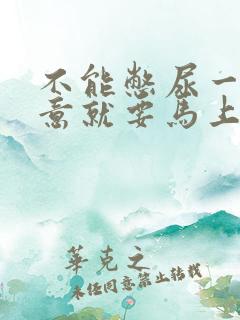 不能憋尿一
意就要马上
華克之
未经同意禁止转载